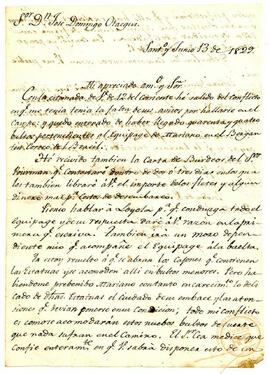 Sor. Dn. José Domingo Otaegui.
Santgo. Junio 13 de 1822.
Mi apreciado amo. y Sor.
Con la estimada de V. de 12 del corriente hé salido del conflicto
en q. me tenia la falta de sus avisos por hallarse en el
Campo: y quedo enterado de haber llegado quarenta y quatro
bultos pertenecientes al Equipage de Mariano en el Bergan
tin Correo del Brasil.
Hé recivido tambien la Carta de Burdeos del Sor.
á q. contestaré dentro de dos ó tres dias en los qua
les tambien libraré á V. el importe de los fletes y algun
dinero mas pa. Costas de desembarco.
Tiene hablar á Loyola pa. q. conduzga todo el
Equipage y su respuesta daré á V. razon en la pri
mera q. escriva. Tambien irá un mozo depen
diente mio q. acompañe el Equipage á la buelta.
Ya estoy resuelto á q. se abran los Cajones q. contienen
las Estatuas y se acomoden alli en bultos menores. Pero ha
biendome prebenido Mariano tanto en encarecimto. lo deli
cado de dhas. Estatuas el cuidado de su embace y la aten
cion q. devia ponerse en su conduccion; todo mi conflicto
es como se acomodarán estos nuebos bultos de suerte
que nada sufran en el Camino. El
confie enteramte. en q. V. sabrá disponer esto de un